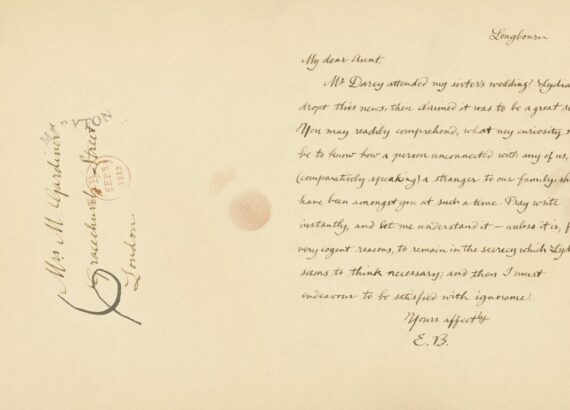 Mrs M. Gardiner
Gracechurch Street
London
SEP 5
Longbourn
My dear Aunt,
Mr Darcy attended my sister's wedding! Lydia
dropt this news, then claimed it was to be a great
You may readily comprehend, what my curiosity
be to know how a person unconnected with any of us,
(comparatively speaking) a stranger to our family,
have been amongst you at such a time. Pray write
instantly, and let me understand it — unless it is,
very cogent reasons, to remain in the secrecy which
seems to think necessary; and then I must
endeavour to be satisfied with ignorance.
Yours affectly
E. B.